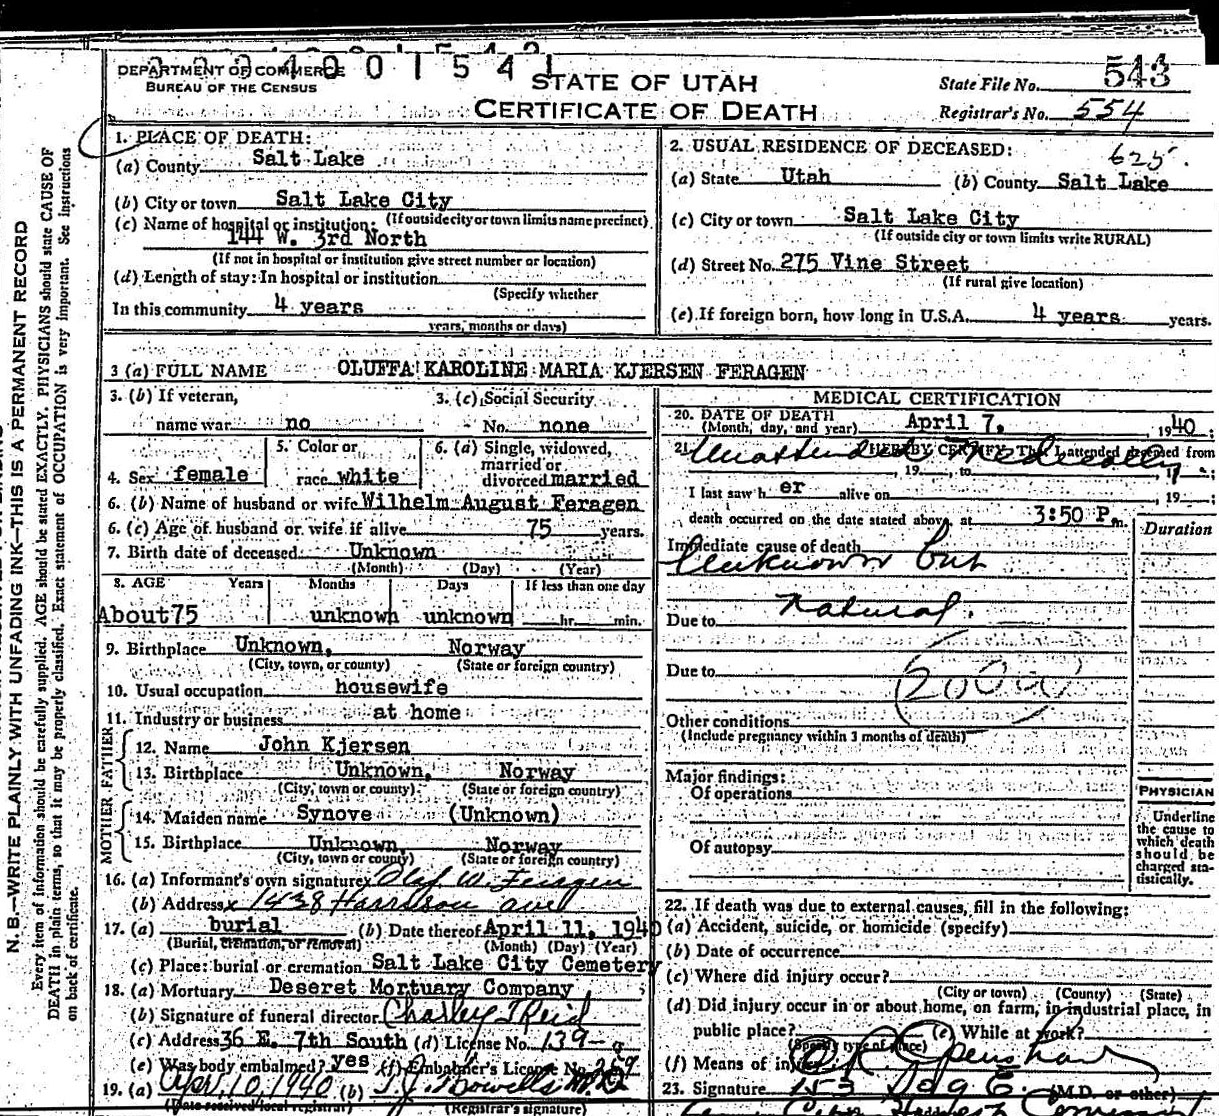 DEPARTMENT OF COMMERCE
BUREAU OF THE CENSUS
STATE OF UTAH
CERTIFICATE OF DEATH
State File No. 543
Registrar's No. 554
1. PLACE OF DEATH:
(a) County Salt Lake
(b) City or town Salt Lake City
(If outside city or town limits name precinct)
(c) Name of hospital or institution:
144 W. 3rd North
(If not in hospital or institution give street number or location)
(d) Length of stay: In hospital or institution
(Specify whether
In this community 4 years
years, months or days)
2. USUAL RESIDENCE OF DECEASED:
625.
(a) State Utah (b) County Salt Lake
(c) City or town Salt Lake City
(If outside city or town limits write RURAL)
(d) Street No. 275 Vine Street
(If rural give location)
(e) If foreign born, how long in U.S.A. 4 years years.
3 (a) FULL NAME OLUFFA KAROLINE MARIA KJERSEN FERAGEN
3. (b) If veteran,
name war no
3. (c) Social Security
No. none
4. Sex female
5. Color or
race white
6. (a) Single, widowed,
married or
divorced married
6. (b) Name of husband or wife Wilhelm August Feragen
6. (c) Age of husband or wife if alive 75 years.
7. Birth date of deceased Unknown
(Month) (Day) (Year)
8. AGE Years Months Days If less than one day
About 75 unknown unknown hr. min.
9. Birthplace Unknown, Norway
(City, town, or county) (State or foreign country)
10. Usual occupation housewife
11. Industry or business at home
FATHER
12. Name John Kjersen
13. Birthplace Unknown, Norway
(City, town or county) (State or foreign country)
MOTHER
14. Maiden name Synove (Unknown)
15. Birthplace Unknown, Norway
(City, town or county) (State or foreign country)
16. (a) Informant's own signature x Olaf W. Feragen
(b) Address x 1438 Harrison ave
17. (a) burial (b) Date thereof April 11, 1940
(Burial, cremation, or removal) (Month) (Day) (Year)
(c) Place: burial or cremation Salt Lake City Cemetery
18. (a) Mortuary Deseret Mortuary Company
(b) Signature of funeral director Charley Reid
(c) Address 36 E. 7th South (d) License No. 139
(e) Was body embalmed? yes (f) Embalmer's License No. 269
19. (a) Apr. 10, 1940 (b)
(Date received local registrar) (Registrar's signature)
MEDICAL CERTIFICATION
20. DATE OF DEATH
(Month, day, and year) April 7, 1940
21. I HEREBY CERTIFY, That I attended deceased from
Unattended medically
, 19 , to , 19 ;
I last saw h er alive on , 19 ;
death occurred on the date stated above, at 3:50 P m.
Duration
Immediate cause of death
Unknown but
natural.
Due to
Due to
Other conditions
(Include pregnancy within 3 months of death)
Major findings:
Of operations
Of autopsy
PHYSICIAN
Underline
the cause to
which death
should be
charged sta-
tistically.
22. If death was due to external causes, fill in the following:
(a) Accident, suicide, or homicide (specify)
(b) Date of occurrence
(c) Where did injury occur?
(City or town) (County) (State)
(d) Did injury occur in or about home, on farm, in industrial place, in
public place? (e) While at work?
(Specify type of place)
(f) Means of injury
23. Signature (M.D. or other)
N. B.—WRITE PLAINLY WITH UNFADING INK—THIS IS A PERMANENT RECORD
Every item of information should be carefully supplied. AGE should be stated EXACTLY. PHYSICIANS should state CAUSE OF
DEATH in plain terms, so that it may be properly classified. Exact statement of OCCUPATION is very important. See instructions
on back of certificate.